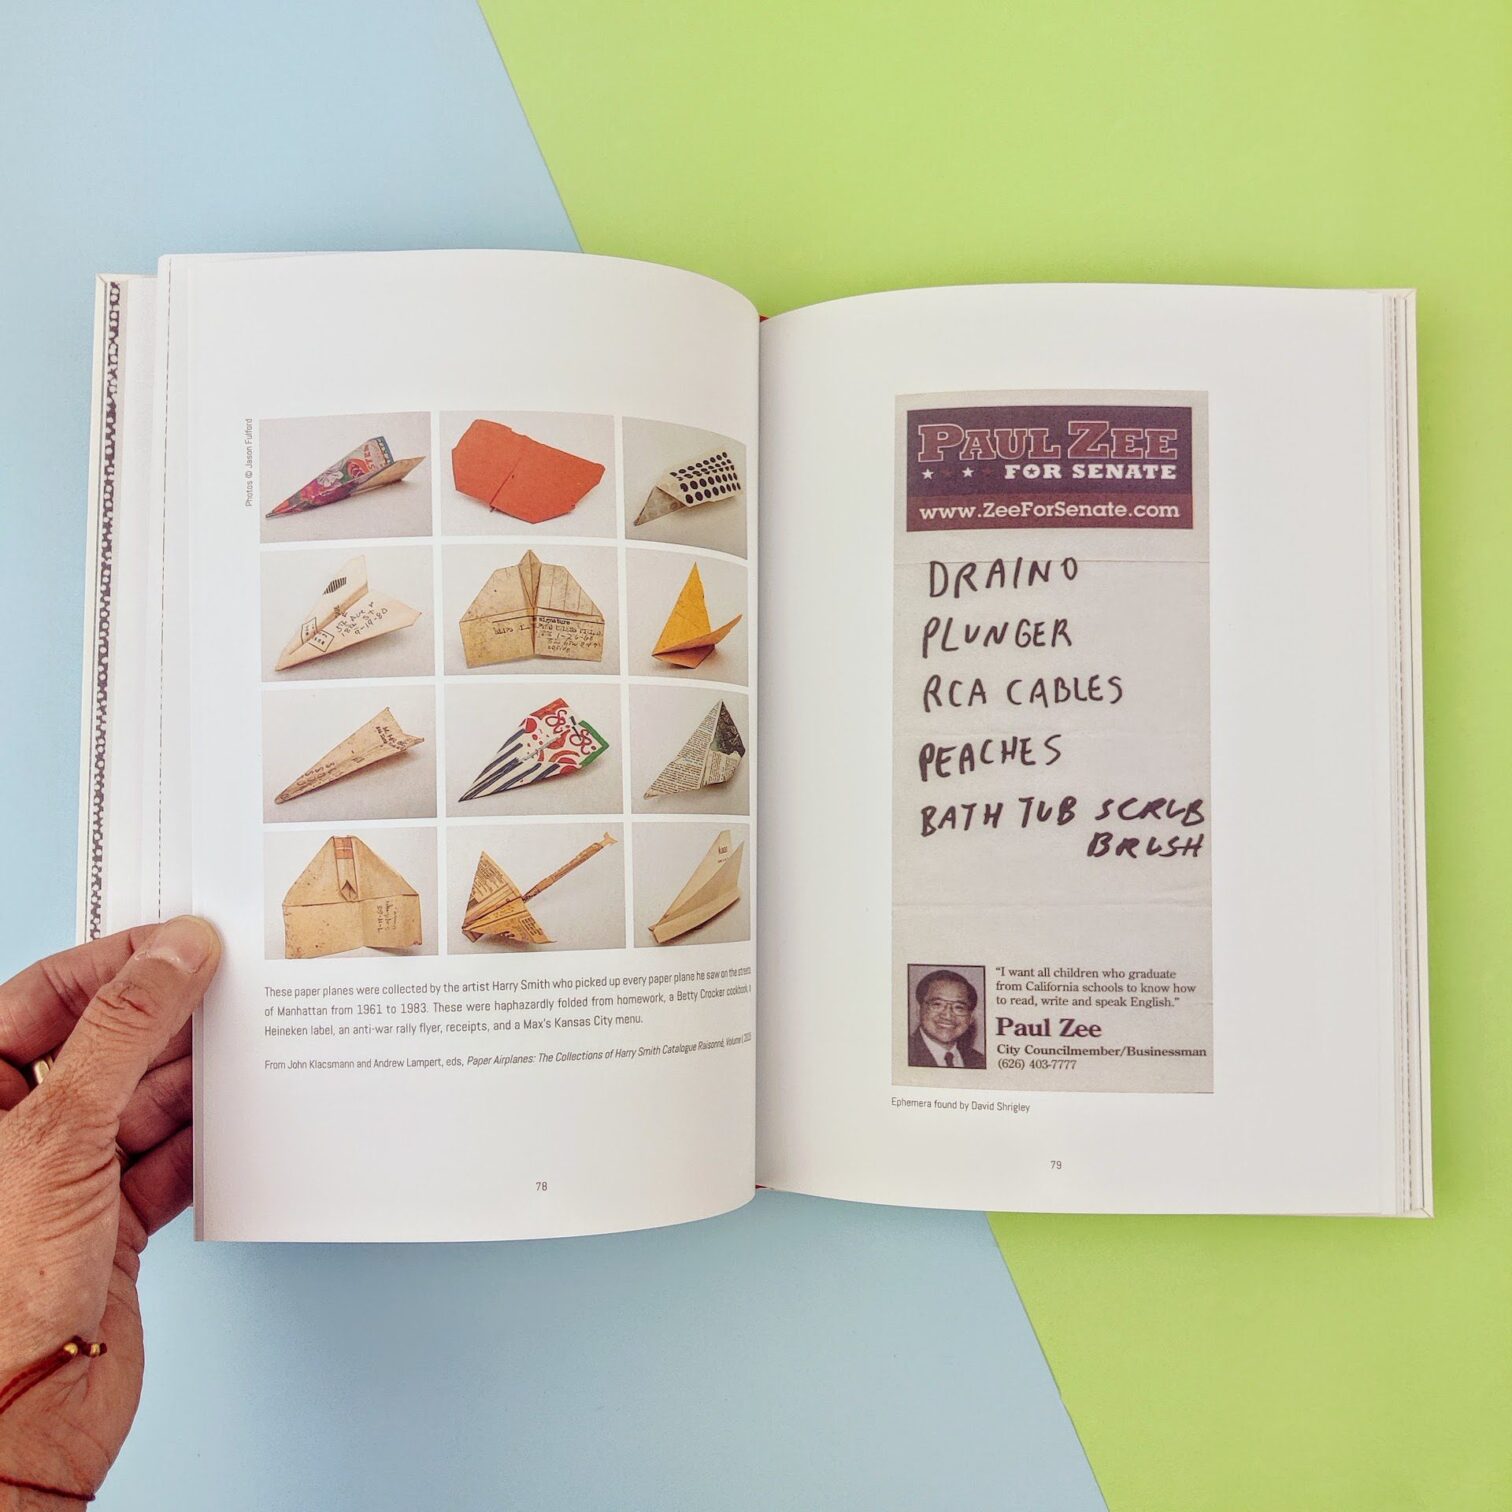 Photos © Jason Fulford
These paper planes were collected by the artist Harry Smith who picked up every paper plane he saw on the streets
of Manhattan from 1961 to 1983. These were haphazardly folded from homework, a Betty Crocker cookbook, a
Heineken label, an anti-war rally flyer, receipts, and a Max's Kansas City menu.
From John Klacsmann and Andrew Lampert, eds, Paper Airplanes: The Collections of Harry Smith Catalogue Raisonné, Volume I,
78
PAUL ZEE
FOR SENATE
www.ZeeForSenate.com
DRAINO
PLUNGER
RCA CABLES
PEACHES
BATH TUB SCRUB
BRUSH
"I want all children who graduate
from California schools to know how
to read, write and speak English."
Paul Zee
City Councilmember/Businessman
(626) 403-7777
Ephemera found by David Shrigley
79